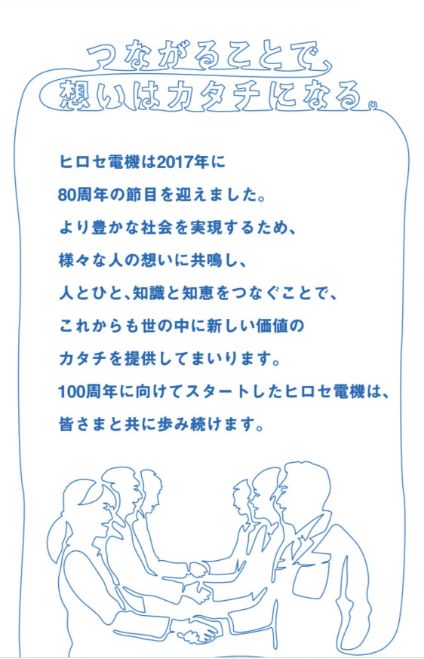 つながることで、
想いはカタチになる。
ヒロセ電機は2017年に
80周年の節目を迎えました。
より豊かな社会を実現するため、
様々な人の想いに共鳴し、
人とひと、知識と知恵をつなぐことで、
これからも世の中に新しい価値の
カタチを提供してまいります。
100周年に向けてスタートしたヒロセ電機は、
皆さまと共に歩み続けます。